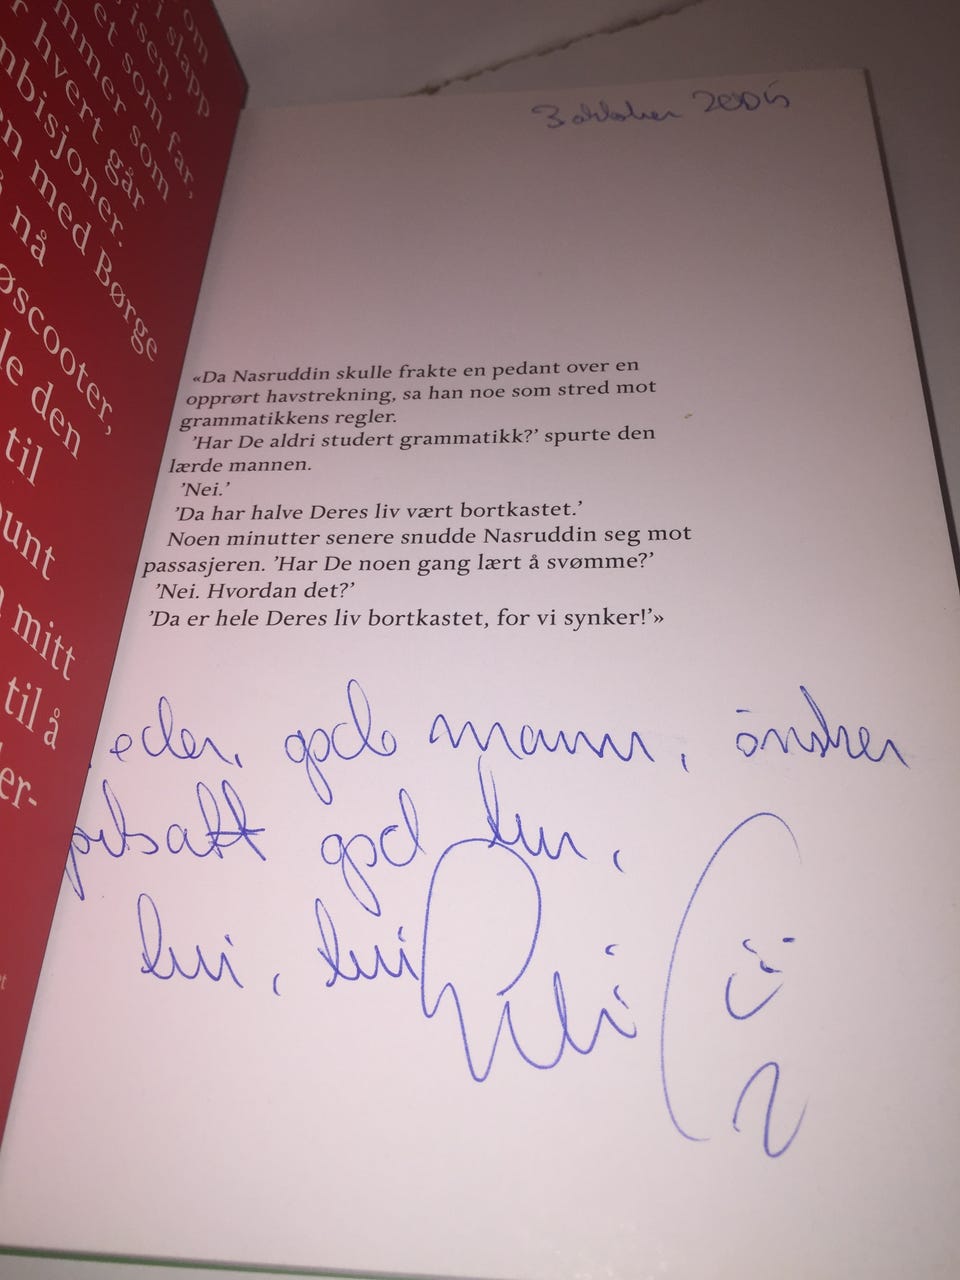 om
slapp
isen,
et som far,
mmer som
r hvert går
mbisjoner.
en med Børge
å nå
øscooter,
le den
til
unt
mitt
til å
er-
3 oktober 2005
«Da Nasruddin skulle frakte en pedant over en
opprørt havstrekning, sa han noe som stred mot
grammatikkens regler.
'Har De aldri studert grammatikk?' spurte den
lærde mannen.
'Nei.'
'Da har halve Deres liv vært bortkastet.'
Noen minutter senere snudde Nasruddin seg mot
passasjeren. 'Har De noen gang lært å svømme?'
'Nei. Hvordan det?'
'Da er hele Deres liv bortkastet, for vi synker!'»
gode mann, ønsker
god tur,